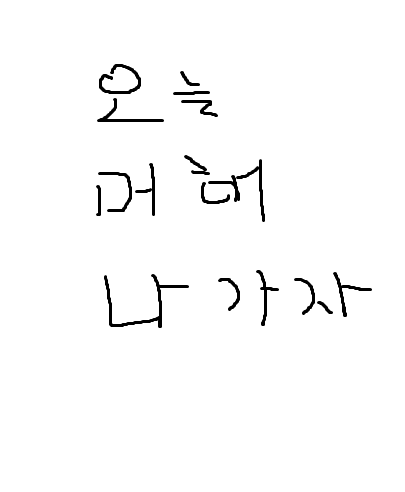 오늘
머해
나가자